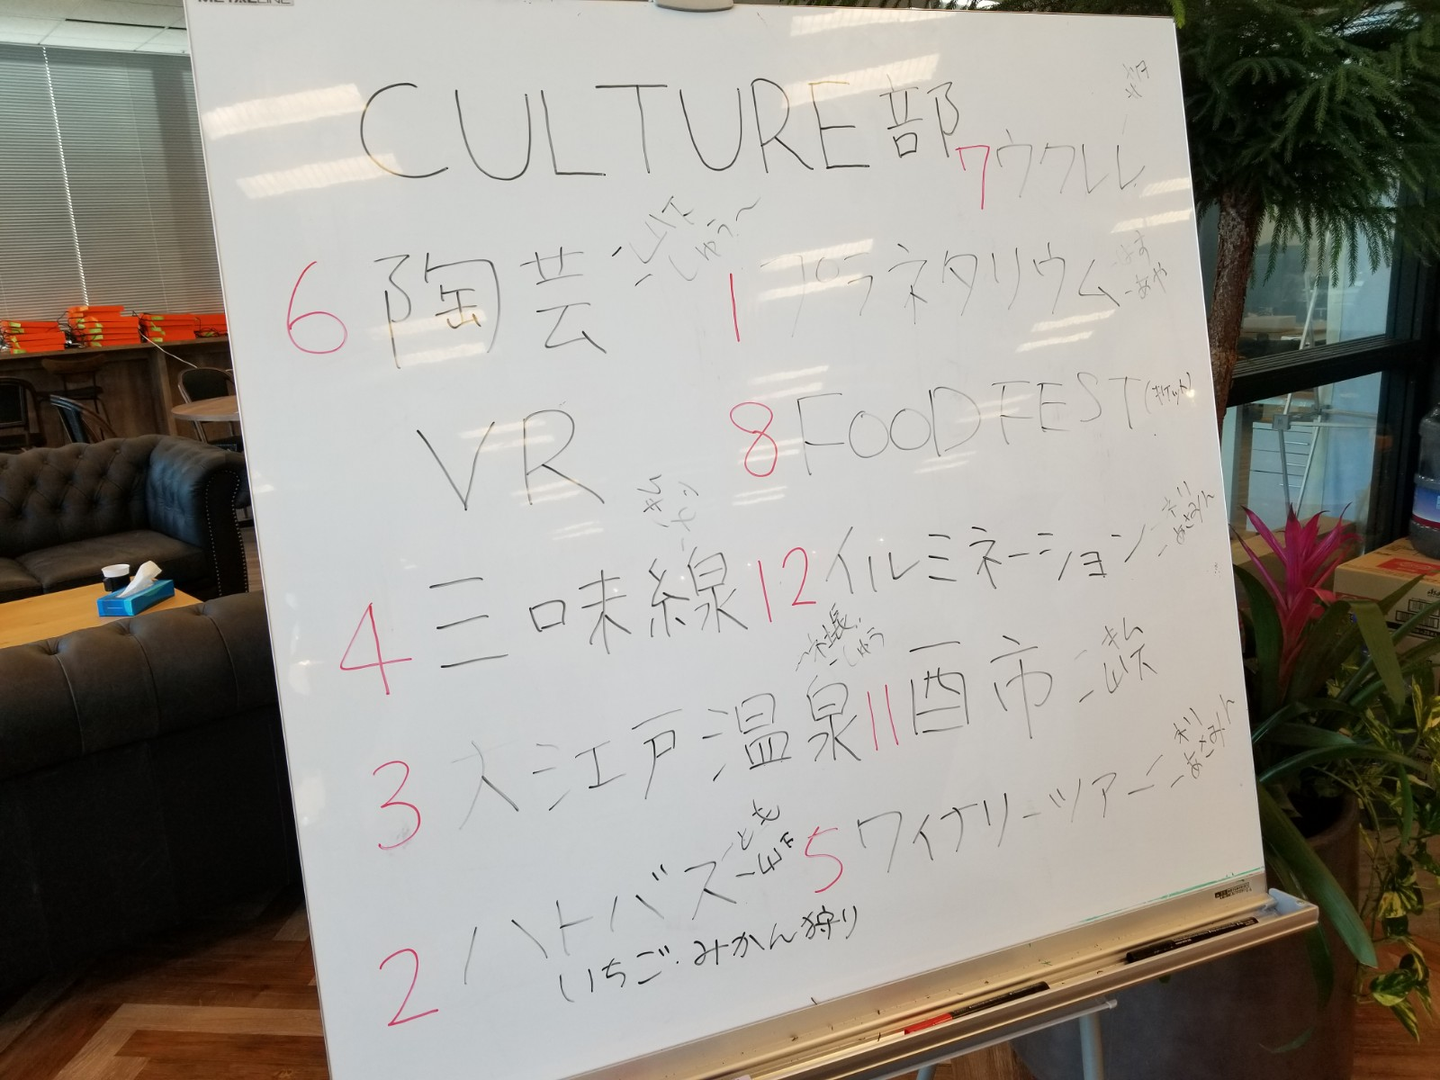 CULTURE部
7 ウクレレ
6 陶芸
山下
しゅう
1 プラネタリウム
あや
VR
8 FOOD FEST (チケット)
4 三味線
キム
12 イルミネーション
あさみん
3 大江戸温泉
社長
しゅう
11 酉市
キム
2 ハトバス
とも
山下
5 ワイナリーツアー
あさみん
いちご・みかん狩り